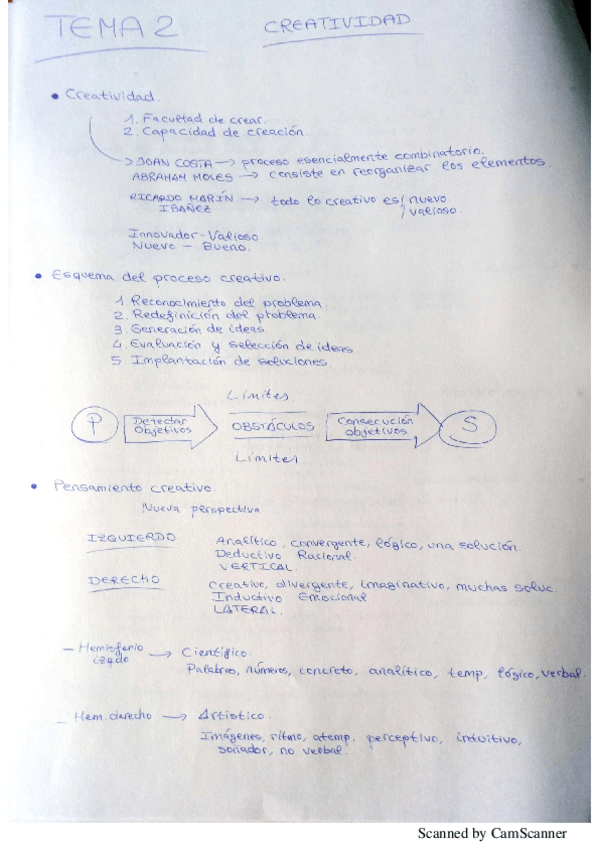 TEMA 2 CREATIVIDAD
• Creatividad.
1. Facultad de crear.
2. Capacidad de creación.
> JOAN COSTA → proceso esencialmente combinatorio.
ABRAHAM MOLES → consiste en reorganizar los elementos
RICARDO MARÍN → todo lo creativo es / nuevo
IBAÑEZ / valioso.
Innovador - Valioso
Nuevo - Bueno.
• Esquema del proceso creativo.
1. Reconocimiento del problema
2. Redefinición del problema.
3. Generación de ideas.
4. Evaluación y selección de ideas
5. Implantación de soluciones
Límites
P Detectar Objetivos OBSTÁCULOS Consecución objetivos S
Límites
• Pensamiento creativo
Nueva perspectiva
IZQUIERDO Analítico, convergente, lógico, una solución.
Deductivo Racional.
VERTICAL.
DERECHO Creativo, divergente, imaginativo, muchas soluc.
Inductivo Emocional
LATERAL.
- Hemisferio izqdo → Científico.
Palabras, números, concreto, analítico, temp, lógico, verbal.
- Hem. derecho → Artístico.
Imágenes, ritmo, atemp. perceptivo, intuitivo,
soñador, no verbal.
Scanned by CamScanner